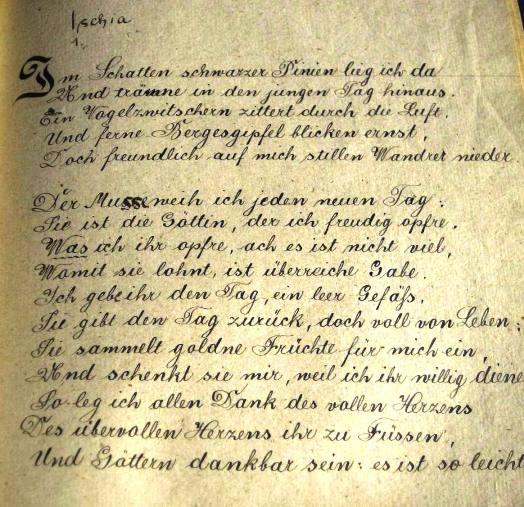 Ischia
1.
Im Schatten schwarzer Pinien lieg ich da
Und träume in den jungen Tag hinaus.
Ein Vogelzwitschern zittert durch die Luft.
Und ferne Bergesgipfel blicken ernst,
Doch freundlich auf mich stillen Wandrer nieder
Der Musse weih ich jeden neuen Tag:
Sie ist die Göttin, der ich freudig opfre.
Was ich ihr opfre, ach es ist nicht viel,
Womit sie lohnt, ist überreiche Gabe.
Ich gebe ihr den Tag, ein leer Gefäss,
Sie gibt den Tag zurück, doch voll von Leben;
Sie sammelt goldne Früchte für mich ein,
Und schenkt sie mir, weil ich ihr willig diene
So leg ich allen Dank des vollen Herzens
Des übervollen Herzens ihr zu Füssen,
Und Göttern dankbar sein: es ist so leicht